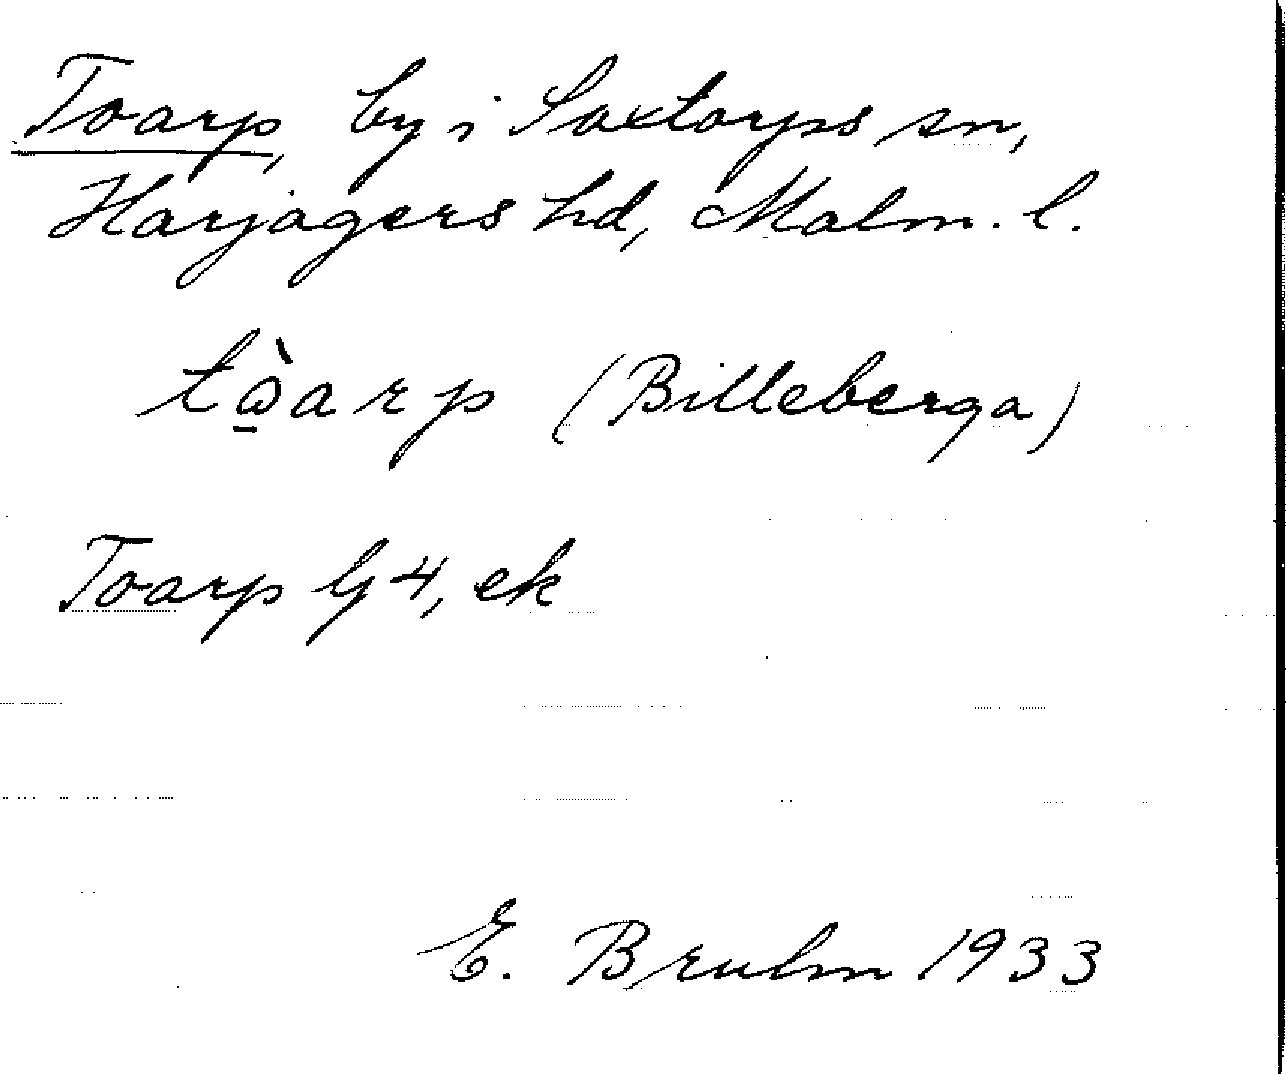 Toarp, by i Saxtorps sn,
Harjagers hd, Malm. l.
tὼ̱arp (Billeberga)
Toarp G4, ek
E. Bruhn 1933